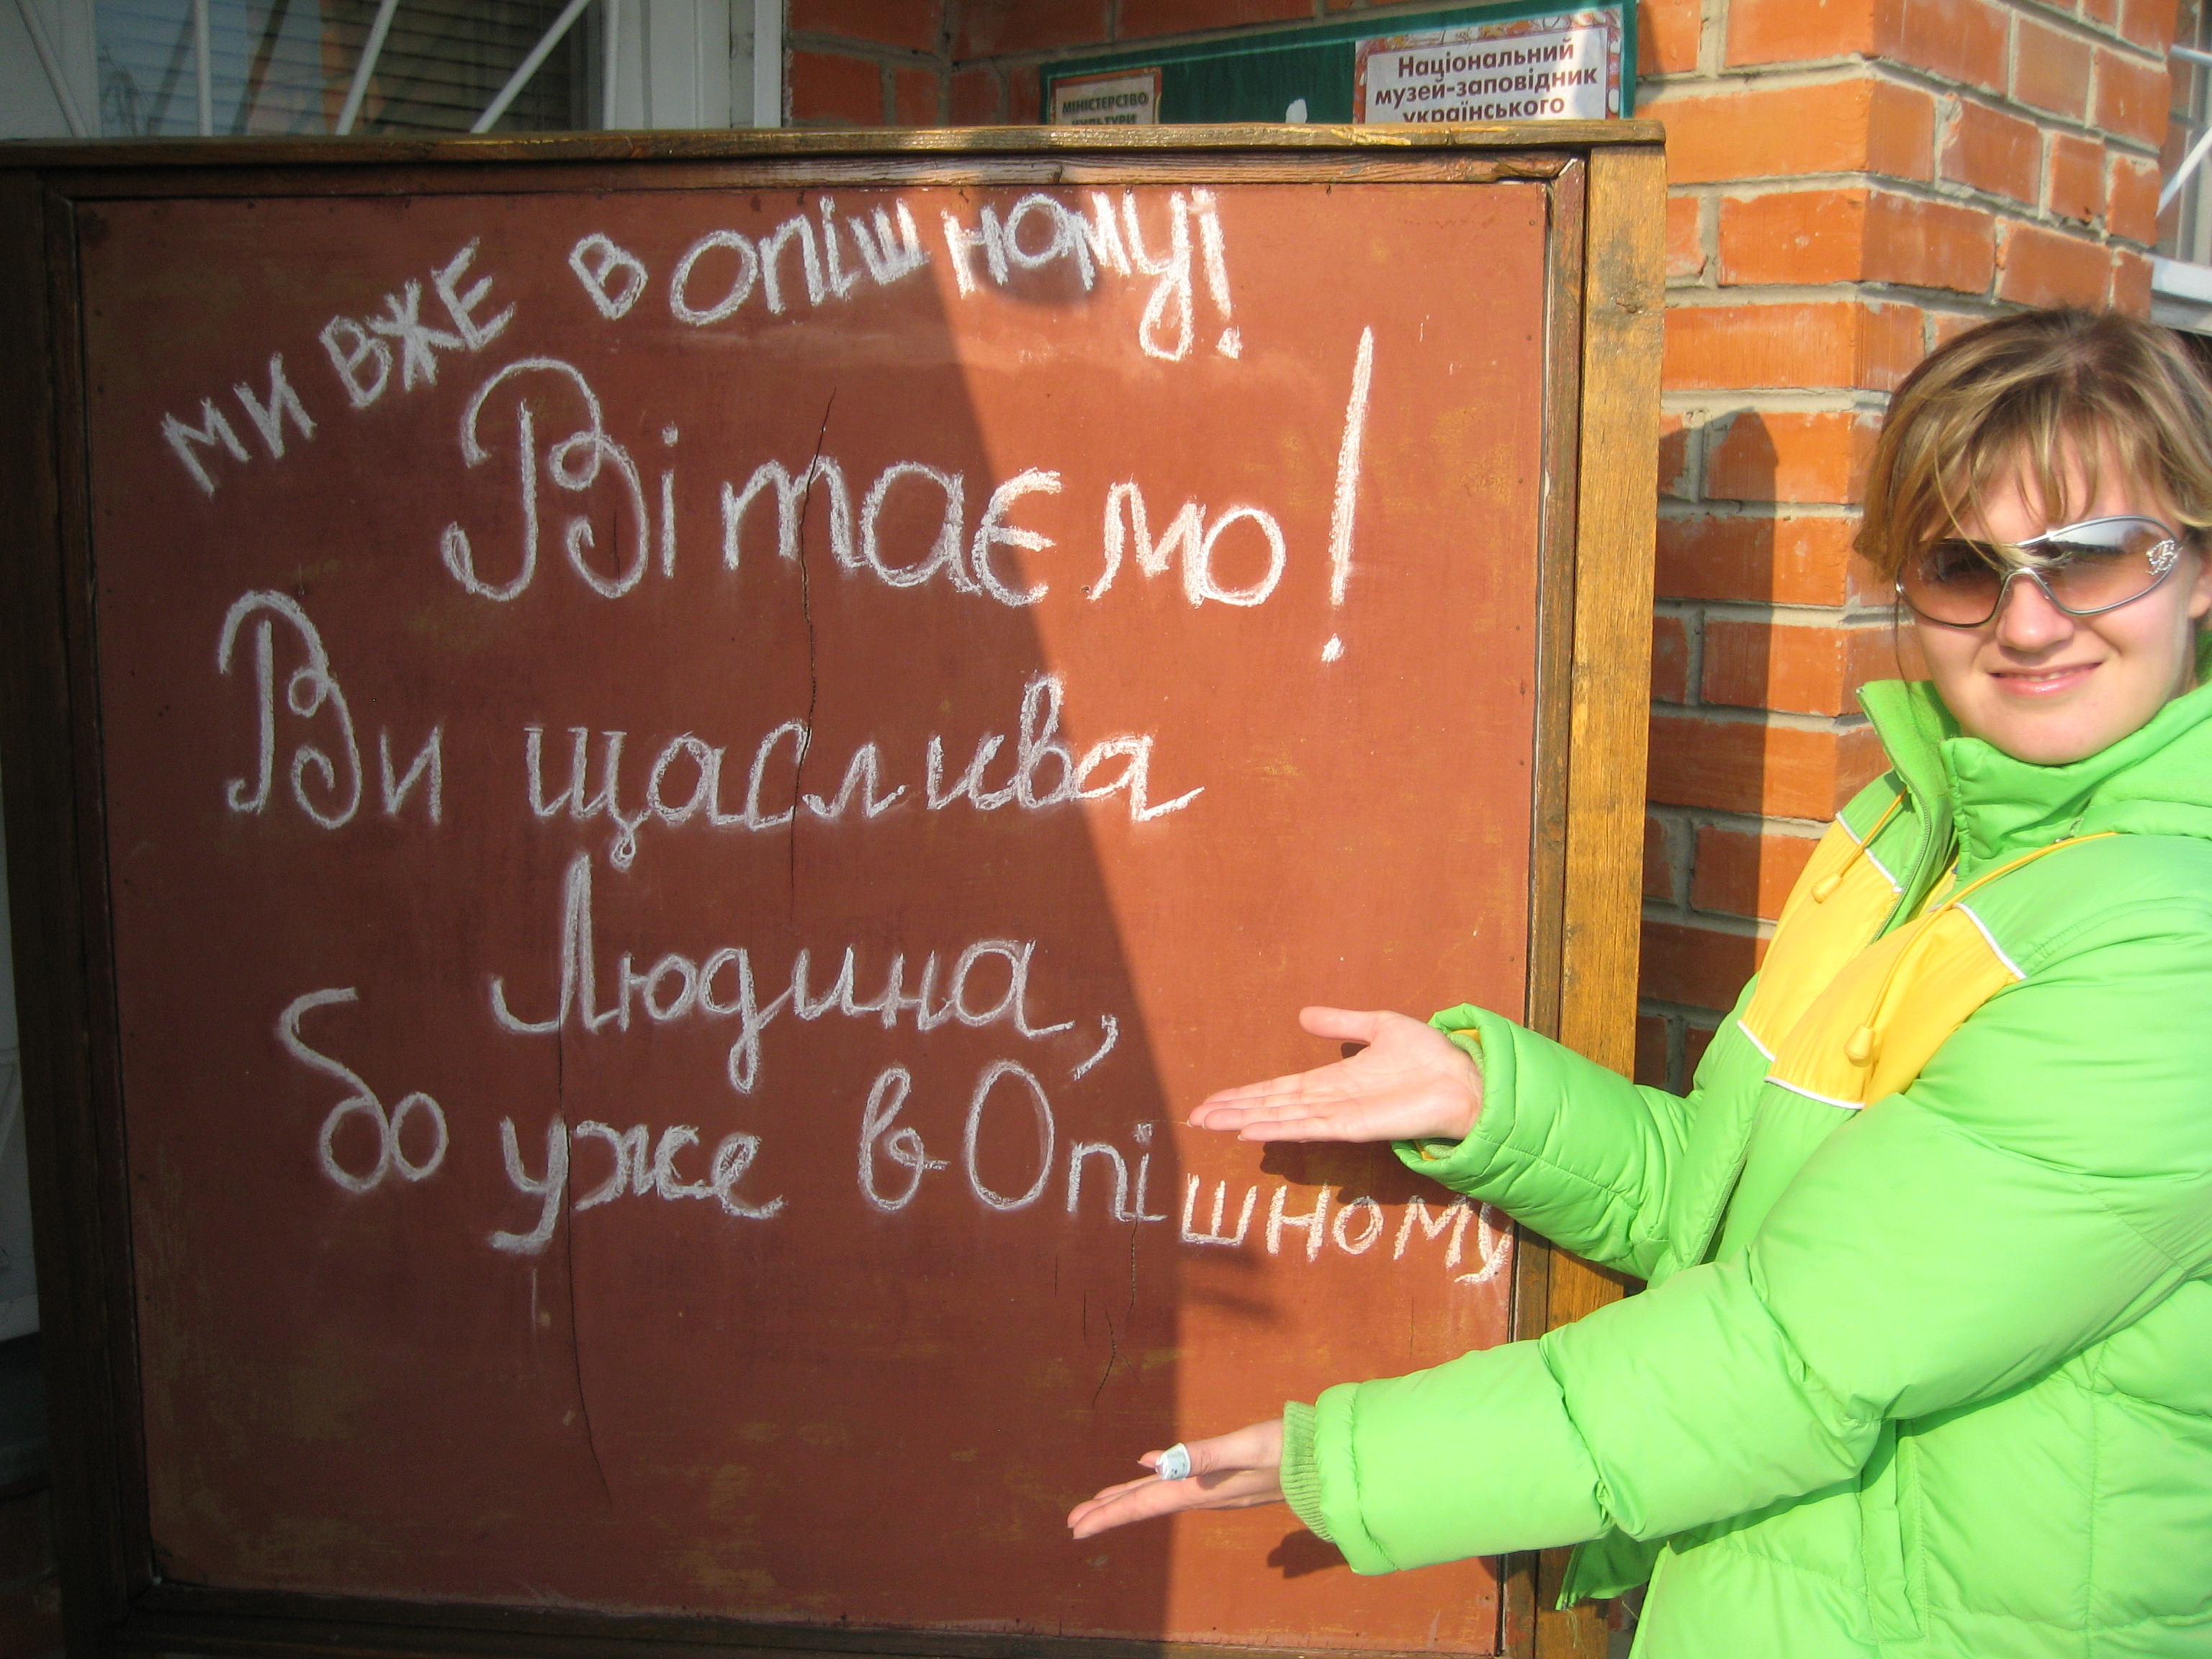 МІНІСТЕРСТВО
КУЛЬТУРИ
Національний
музей-заповідник
українського
МИ ВЖЕ В ОПІШНОМУ!
Вітаємо!
Ви щаслива
Людина,
бо уже в Опішному